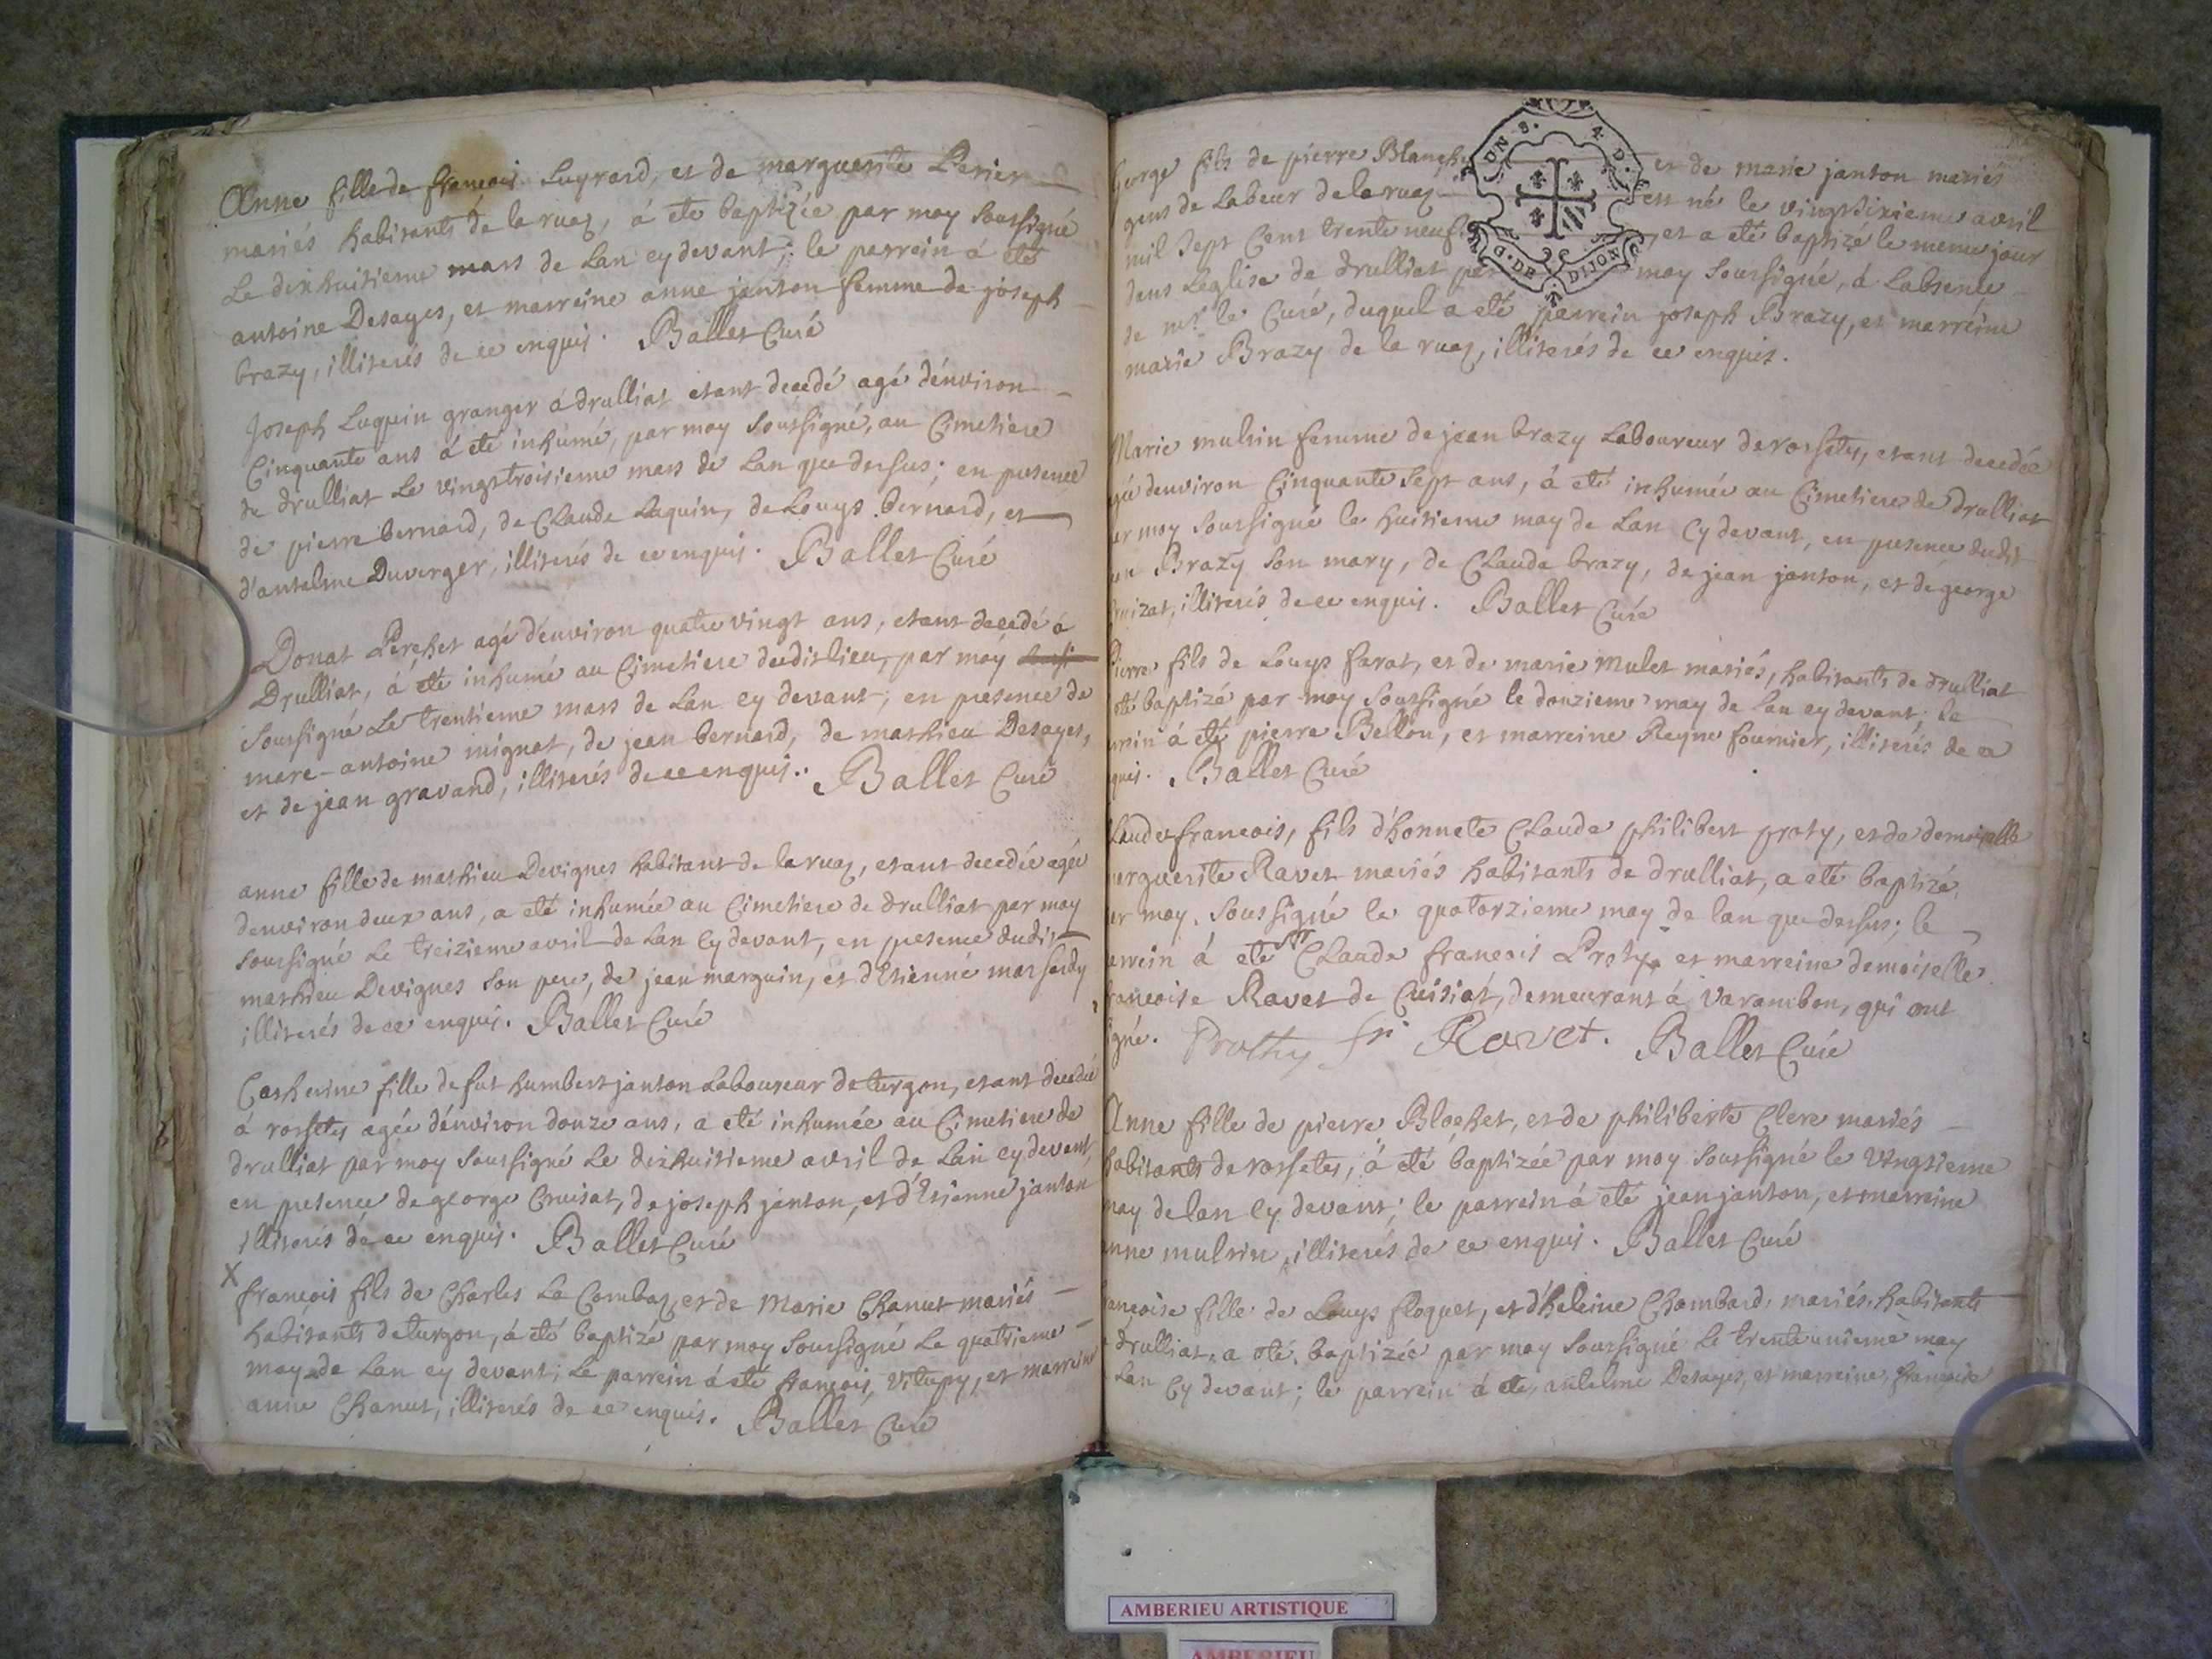 Anne fille de francois Luyrard, et de marguerite Perier
mariés habitants de la ruaz, á eté baptizée par moy soussigné
Le dixhuitieme mars de Lan cy devant; le parrein á eté
antoine Desayes, et marreine anne janton femme de joseph
brazy, illiterés de ce enquis. Ballet Curé
Joseph Luquin granger á drulliat etant decedé agé d'environ
Cinquante ans á eté inhumé, par moy soussigné, au Cimetiere
de drulliat Le vingttroisieme mars de Lan que dessus; en presence
de pierre bernard, de Claude Luquin, de Louys bernard, et
d'antelme Duverger, illiterés de ce enquis. Ballet Curé
Donat Perchet agé d'environ quatre vingt ans, etant decedé á
Drulliat, á eté inhumé au Cimetiere dudit lieu, par moy
soussigné Le trentieme mars de Lan cy devant; en presence de
marc-antoine mignot, de jean bernard, de mathieu Desayes,
et de jean gravand, illiterés de ce enquis. Ballet Curé
anne fille de mathieu Devignes habitant de la ruaz, etant decedée agée
denviron deux ans, a eté inhumée au Cimetiere de drulliat par moy
soussigné Le treizieme avril de Lan cy devant, en presence dudit
mathieu Devignes son pere, de jean marguin, et d'Etienne
illiterés de ce enquis. Ballet Curé
Catherine fille de fut humbert janton Laboureur de turgon, etant decedée
á rossetes agée d'environ douze ans, a eté inhumée au Cimetiere de
drulliat par moy soussigné Le dixhuitieme avril de Lan cy devant,
en presence de george Cruisat, de joseph janton, et d'Etienne janton
illiterés de ce enquis. Ballet Curé
X
francois fils de Charles La Combaz, et de Marie Chanut mariés
habitants de turgon, á eté baptizé par moy soussigné Le quatrieme
may de Lan cy devant; Le parrein á eté francois Vitupy, et marreine
anne Chanut, illiterés de ce enquis. Ballet Curé
george fils de pierre Blanch et de marie janton mariés
gens de Labeur de la ruaz est né le vingtsixieme avril
mil sept Cent trente neuf, et a eté baptizé le meme jour
dans Leglise de drulliat par moy soussigné, á Labsence
de mr. le Curé, duquel a eté parrein joseph Brazy, et marreine
marie Brazy de la ruaz, illiterés de ce enquis.
UN S. 4. D.
G. DE DIJON
Marie mulrin femme de jean brazy Laboureur de rossetes, etant decedée
gée denviron Cinquante sept ans, á eté inhumée au Cimetiere de drulliat
ar moy soussigné le huitieme may de Lan Cy devant, en presence dudit
an Brazy son mary, de Claude brazy, de jean janton, et de george
ruizat, illiterés de ce enquis. Ballet Curé
Pierre fils de Louys farat, et de marie mulet mariés, habitants de drulliat
eté baptizé par moy soussigné le douzieme may de Lan cy devant; Le
rrein á eté pierre Bellon, et marreine Reyne fournier, illiterés de ce
quis. Ballet Curé
laude francois, fils d'honnete Claude philibert proty, et de demoiselle
arguerite Ravet mariés habitants de drulliat, a eté baptizé,
ar moy, soussigné le quatorzieme may de lan que dessus; le
arrein á eté Sr Claude francois Proty et marreine demoiselle
rancoise Ravet de Cuisiat, demeurant á Varambon, qui ont
igné. Prothy fr Ravet. Ballet Curé
Anne fille de pierre Blochet, et de philiberte Clerc mariés
habitants de rossetes, á eté baptizée par moy soussigné le vingtieme
may de lan Cy devant; le parrein á eté jean janton, et marreine
anne mulrin, illiterés de ce enquis. Ballet Curé
rancoise fille de Louys floquet, et d'heleine Chambard, mariés, habitants
drulliat, a eté, baptizée par moy soussigné Le trenteunieme may
Lan Cy devant; le parrein á eté, antelme Desayes, et marreine, francoise
AMBERIEU ARTISTIQUE
AMBERIEU